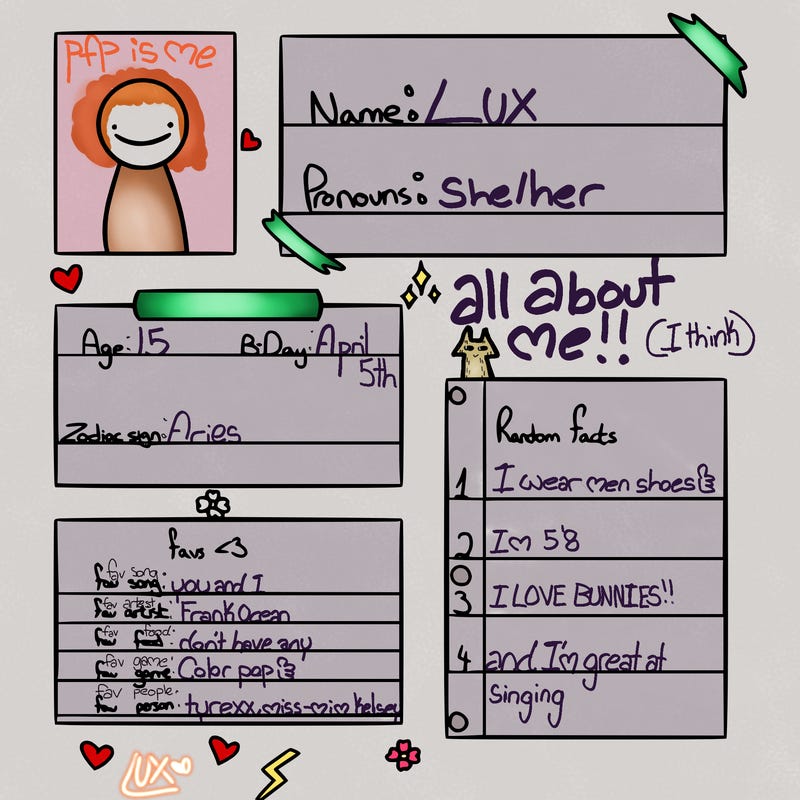 pfp is me
Name: LUX
Pronouns: She/her
all about
me!! (I think)
Age: 15 B-Day: April
5th
Zodiac sign: Aries
Random facts
1 I wear men shoes
2 Im 5'8
3 I LOVE BUNNIES!!
4 and I'm great at
singing
favs <3
fav song:
fav song: you and I
fav artest
fav artist: Frank Ocean
fav food:
fav food: don't have any
fav game:
fav game: Color pop
fav people:
fav person: turexx, miss-mim kelsey
LUX